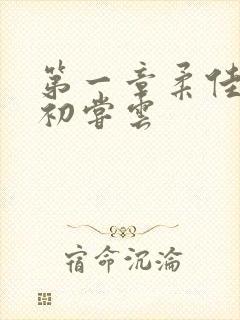 第一章柔佳
初尝云
宿命沉沦